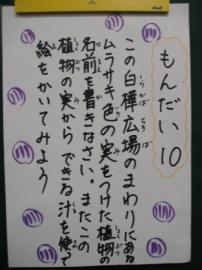 もんだい10
この白樺広場のまわりにある
ムラサキ色の実をつけた植物の
名前を書きなさい。またこの
植物の実からできる汁を使って
絵をかいてみよう